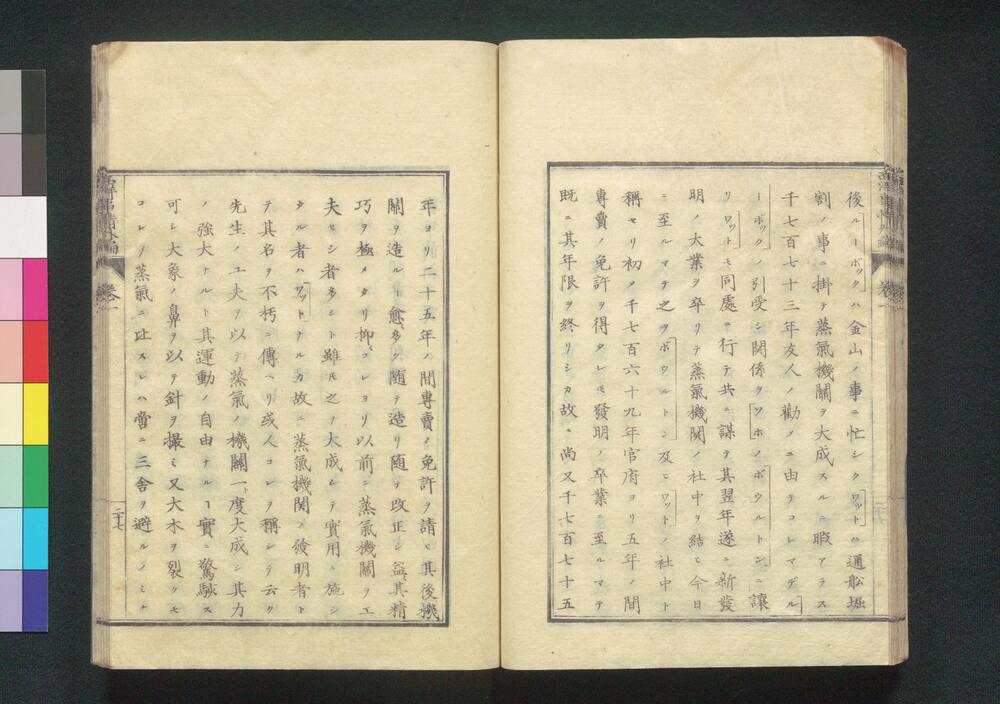 後ルーボックハ金山ノ事ニ忙シクワットハ通船堀
割ノ事ニ掛テ蒸氣機關ヲ大成スルニ暇アラス
千七百七十三年友人ノ勸メニ由テコレマデル
ーボックノ引受シ關係ヲソホノボウルトンニ讓
リワットモ同處ニ行テ共ニ謀テ其翌年遂ニ新發
明ノ大業ヲ卒リテ蒸氣機関ノ社中ヲ結ヒ今日
ニ至ルマテ之ヲボウルトン及ヒワットノ社中ト
稱セリ初メ千七百六十九年官府ヨリ五年ノ間
專賣ノ免許ヲ得タレモ發明ノ卒業ニ至ルマテ
既ニ其年限ヲ終リシカ故ニ尚又千七百七十五
年ヨリ二十五年ノ間專賣ノ免許ヲ請ヒ其後機
關ヲ造ルヿ愈多ク隨テ造リ隨テ改正シ益其精
巧ヲ極メタリ抑コレヨリ以前ニ蒸氣機關ヲ工
夫セシ者多シト雖モ之ヲ大成シテ實用ニ施シ
タル者ハワットナルカ故ニ蒸氣機関ノ發明者ト
テ其名ヲ不朽ニ傳ヘリ或人コレヲ稱シテ云ク
先生ノ工夫ヲ以テ蒸氣ノ機關一ト度大成シ其力
ノ強大ナルト其運動ノ自由ナルヿ實ニ驚駭ス
可シ大象ノ鼻ヲ以テ針ヲ撮ミ又大木ヲ裂クモ
コレヲ蒸氣ニ比スレハ當ニ三舎ヲ避ルノミナ
卷一
二十七